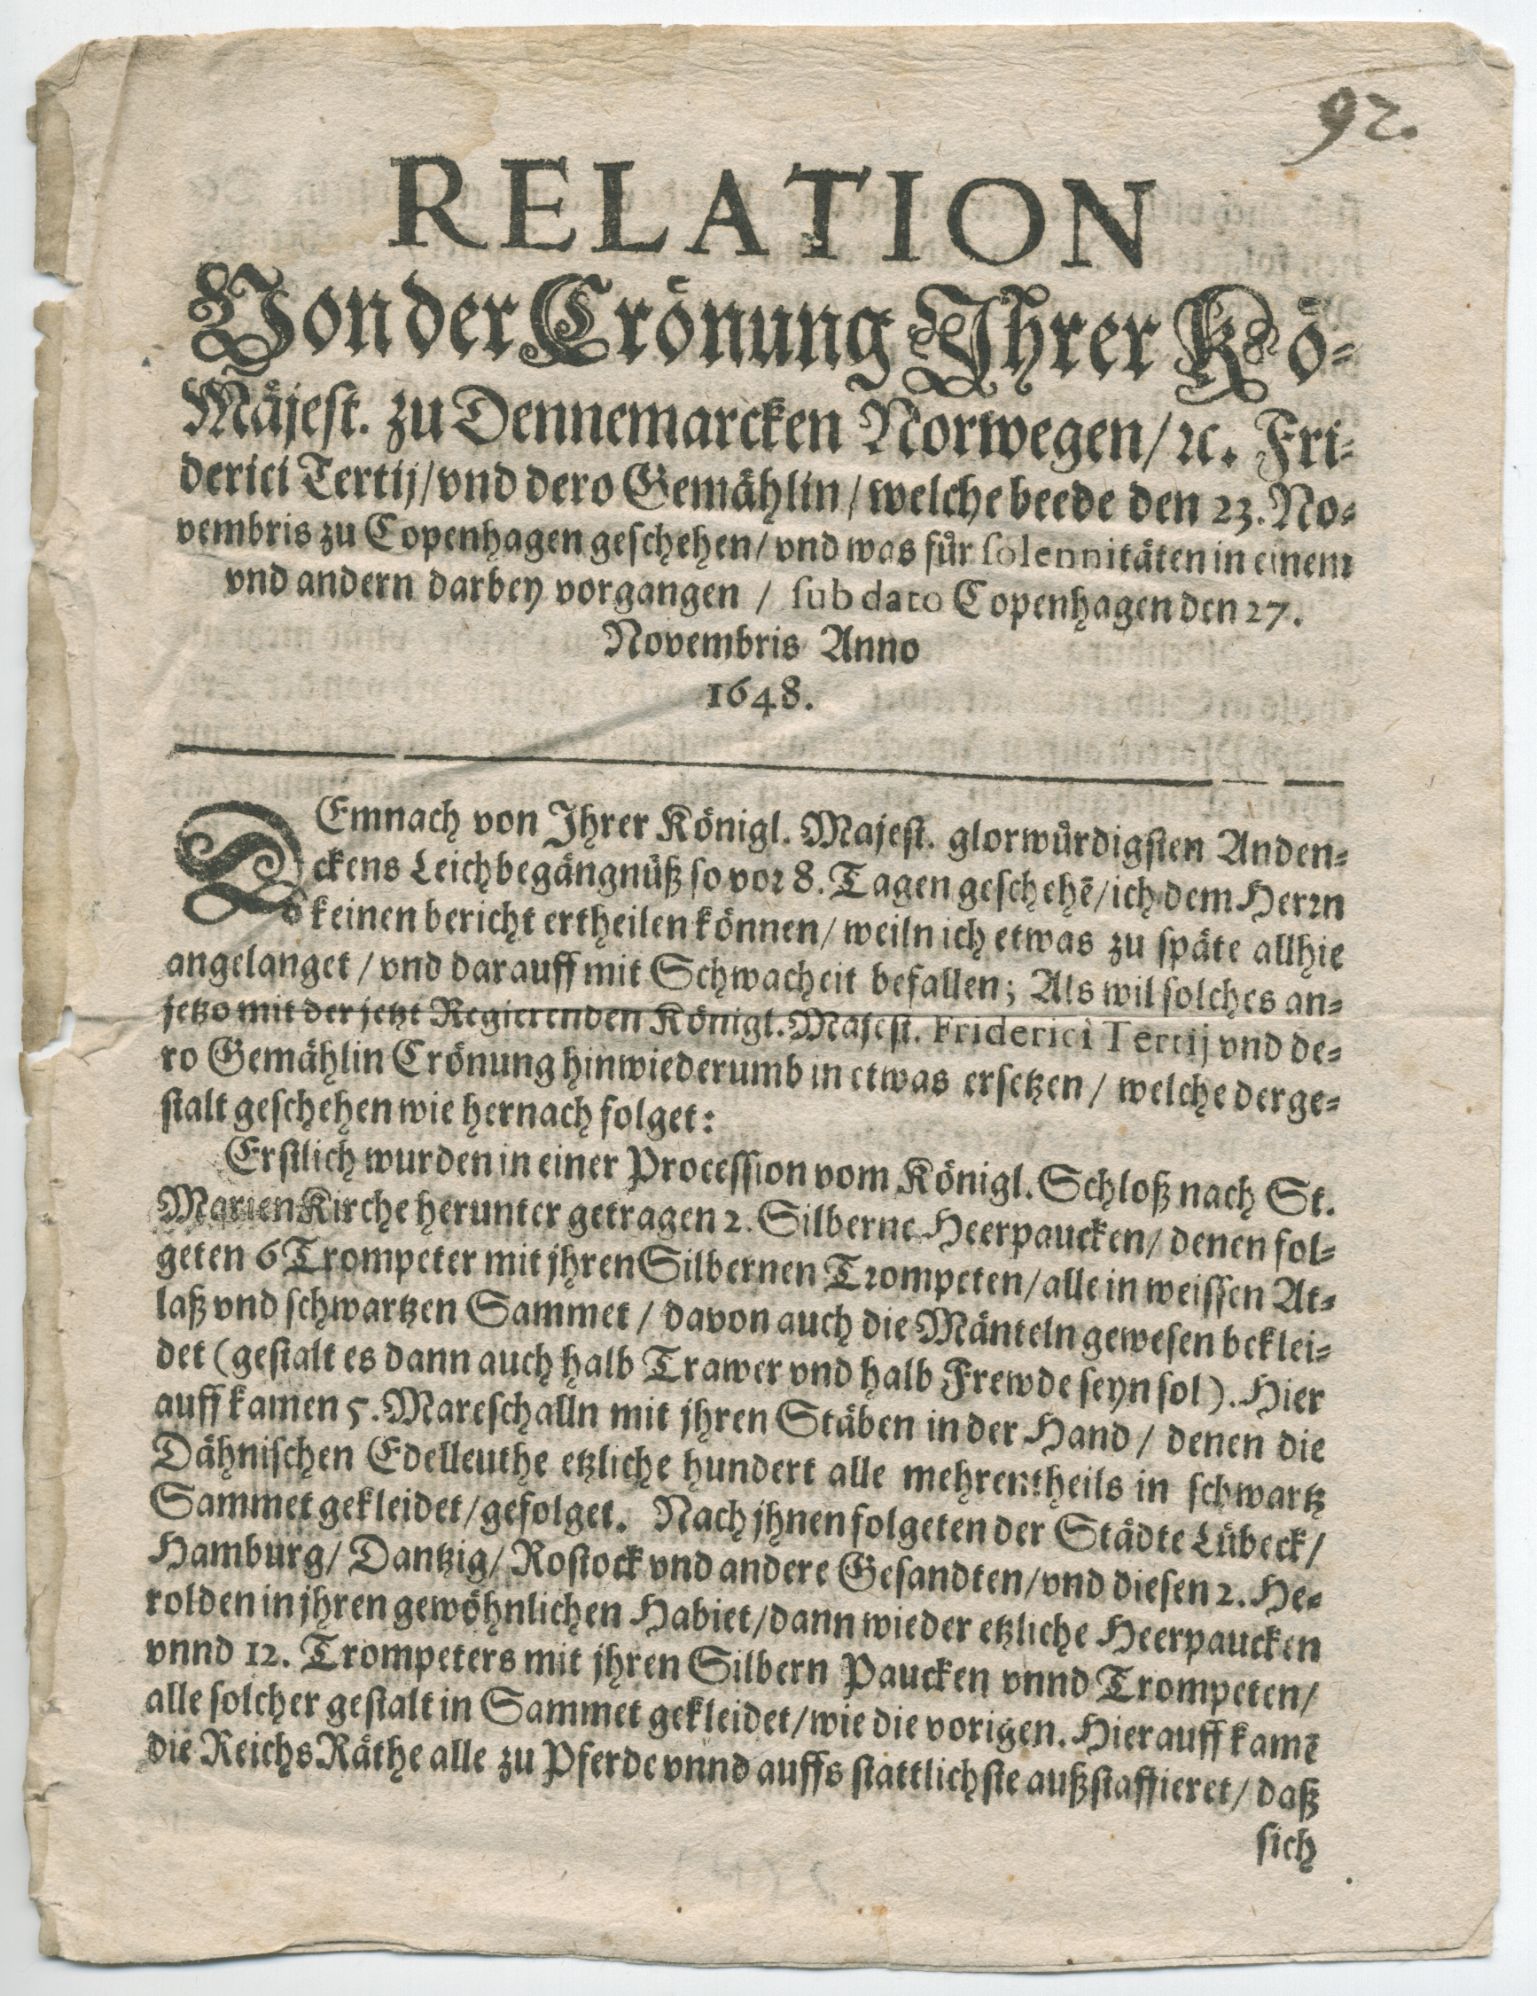 92.
RELATION
Von der Crönung Ihrer Kö-
Mäjest. zu Dennemarcken Norwegen/ ꝛc. Fri-
derici Tertij/ vnd dero Gemählin/ welche beede den 23. No-
vembris zu Copenhagen geschehen/ vnd was fůr solennitäten in einem
vnd andern darbey vorgangen / sub dato Copenhagen den 27.
Novembris Anno
1648.
DEmnach von Ihrer Königl. Majest. glorwůrdigsten Anden-
ckens Leichbegängnůß so vor 8. Tagen geschehē/ ich dem Herrn
keinen bericht ertheilen können/ weiln ich etwas zu späte allhie
angelanget / vnd darauff mit Schwacheit befallen; Als wil solches an-
jetzo mit der jetzt Regierenden Königl. Majest. Friderici Tertij vnd de-
ro Gemählin Crönung hinwiederumb in etwas ersetzen / welche derge-
stalt geschehen wie hernach folget:
Erstlich wurden in einer Procession vom Königl. Schloß nach St.
Marien Kirche herunter getragen 2. Silberne Heerpaucken/ denen fol-
geten 6 Trompeter mit jhren Silbernen Trompeten/ alle in weissen At-
laß vnd schwartzen Sammet / davon auch die Mänteln gewesen beklei-
det (gestalt es dann auch halb Trawer vnd halb Frewde seyn sol). Hier
auff kamen 5. Mareschalln mit jhren Stäben in der Hand / denen die
Dähnischen Edelleuthe etzliche hundert alle mehrentheils in schwartz
Sammet gekleidet/ gefolget. Nach jhnen folgeten der Städte Lübeck/
Hamburg/ Dantzig/ Rostock vnd andere Gesandten/ vnd diesen 2. He-
rolden in jhren gewöhnlichen Habiet/ dann wieder etzliche Heerpaucken
vnnd 12. Trompeters mit jhren Silbern Paucken vnnd Trompeten/
alle solcher gestalt in Sammet gekleidet/ wie die vorigen. Hierauff kamē
die ReichsRäthe alle zu Pferde vnnd auffs stattlichste außstaffieret/ daß
sich